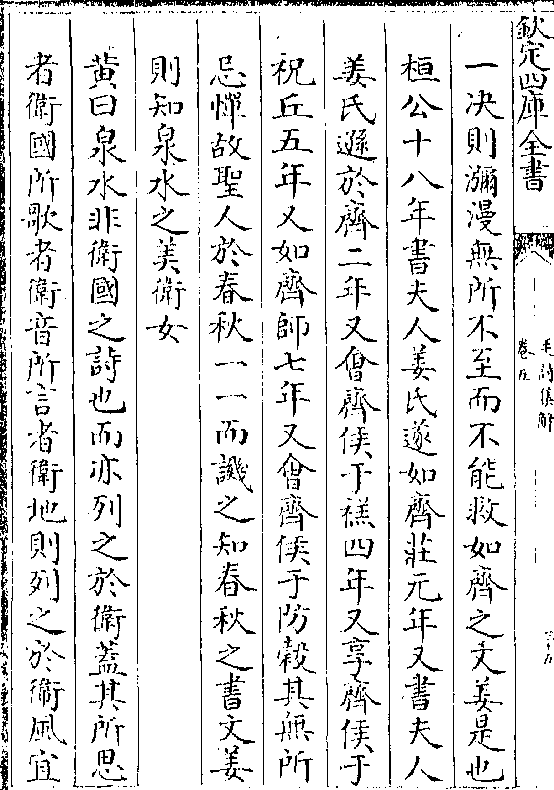 欽定四庫全書
毛詩集解
卷五
一决則瀰漫無所不至而不能救如齊之文姜是也
桓公十八年書夫人姜氏遂如齊莊元年又書夫人
姜氏遜於齊二年又㑹齊侯于禚四年又享齊侯于
祝丘五年又如齊師七年又㑹齊侯于防糓其無所
忌憚故聖人於春秋一一而譏之知春秋之書文姜
則知泉水之美衛女
黄曰泉水非衛國之詩也而亦列之於衛蓋其所思
者衛國所歌者衛音所言者衛地則列之於衛風宜